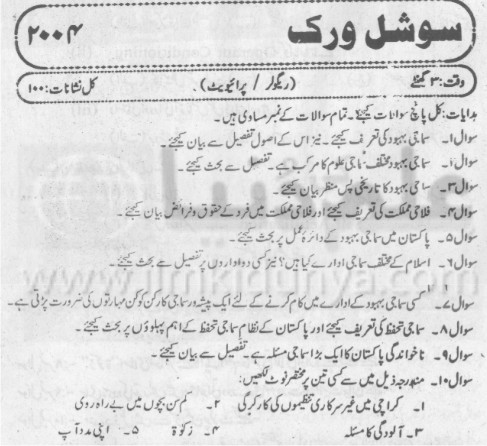 سوشل ورک
۲۰۰۴
وقت: ۳ گھنٹے (ریگولر / پرائیویٹ) کل نشانات: ۱۰۰
ہدایات: کل پانچ سوالات کیجئے۔ تمام سوالات کے نمبر مساوی ہیں۔
سوال ۱۔ سماجی بہبود کی تعریف کیجئے۔ نیز اس کے اصول تفصیل سے بیان کیجئے۔
سوال ۲۔ سماجی بہبود مختلف سماجی علوم کا مرکب ہے۔ تفصیل سے بحث کیجئے۔
سوال ۳۔ سماجی بہبود کا تاریخی پس منظر بیان کیجئے۔
سوال ۴۔ فلاحی مملکت کی تعریف کیجئے اور فلاحی مملکت میں فرد کے حقوق و فرائض بیان کیجئے۔
سوال ۵۔ پاکستان میں سماجی بہبود کے دائرہ عمل پر بحث کیجئے۔
سوال ۶۔ اسلام کے مختلف سماجی ادارے کیا ہیں؟ نیز کسی دو اداروں پر تفصیل سے بحث کیجئے۔
www.ilmkidunya.com
سوال ۷۔ کسی سماجی بہبود کے ادارے میں کام کرنے کے لئے ایک پیشہ ور سماجی کارکن کو کن مہارتوں کی ضرورت پڑتی ہے۔
سوال ۸۔ سماجی تحفظ کی تعریف کیجئے اور پاکستان کے نظام سماجی تحفظ کے اہم پہلوؤں پر بحث کیجئے۔
سوال ۹۔ ناخواندگی پاکستان کا ایک بڑا سماجی مسئلہ ہے۔ تفصیل سے بیان کیجئے۔
سوال ۱۰۔ مندرجہ ذیل میں سے کسی تین پر مختصر نوٹ لکھیں:
۱۔ کراچی میں غیر سرکاری تنظیموں کی کارکردگی ۲۔ کم سن بچوں میں بے راہ روی
۳۔ آلودگی کا مسئلہ ۴۔ زکوٰۃ ۵۔ اپنی مدد آپ